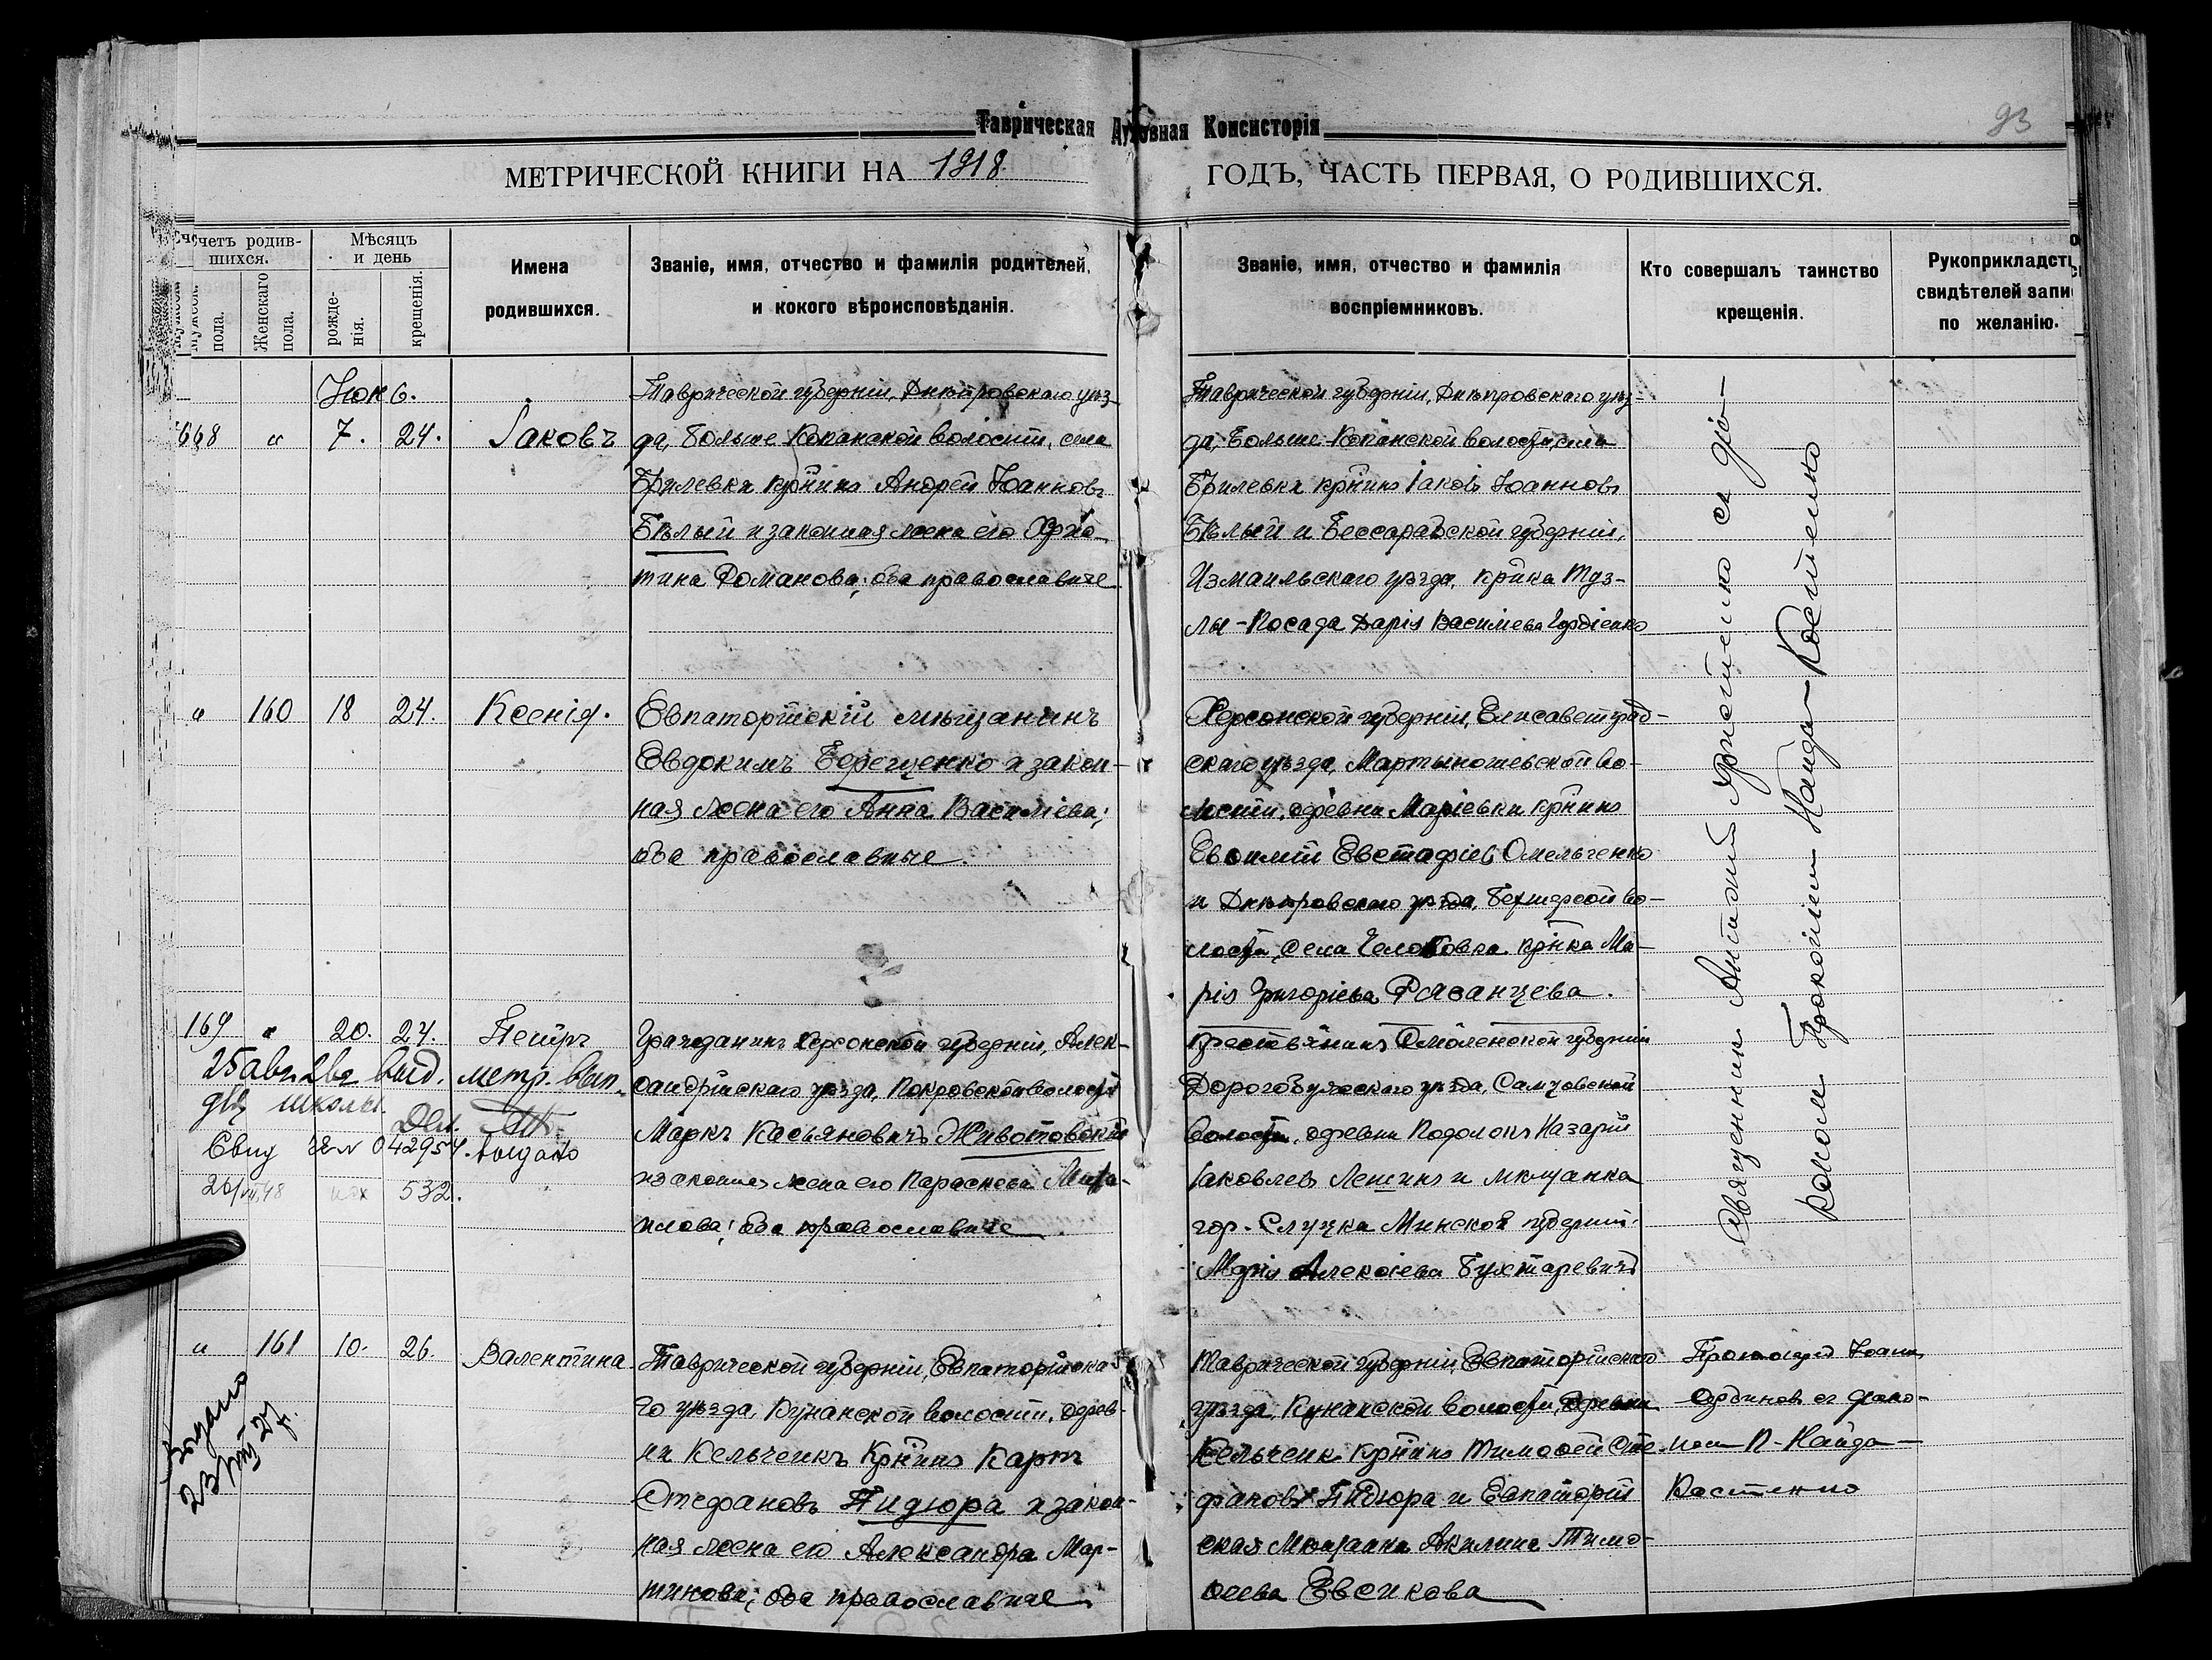 93
Таврическая Духовная Консисторія
МЕТРИЧЕСКОЙ КНИГИ НА 1918. ГОДЪ, ЧАСТЬ ПЕРВАЯ, О РОДИВШИХСЯ.
счетъ родив-
шихся.
Мужеск. пола.
Женскаго пола.
Мѣсяцъ
и день
рожде-
нія.
крещенія.
Имена
родившихся.
Званіе, имя, отчество и фамилія родителей,
и кокого вѣроисповѣданія.
Званіе, имя, отчество и фамилія
воспріемниковъ.
Кто совершалъ таинство
крещенія.
Рукоприкладств
свидѣтелей запи
по желанію.
168 " 7. 24. Іаковъ
Таврической губерніи, Днѣпровскаго уѣз-
да, Больше-Копанской волости, села
Брилевки крн҃инъ Андрей Іоанновъ
Бѣлый и законная жена его
тина Романова; оба православные
Таврической губерніи, Днѣпровскаго уѣз-
да, Больше-Копанской волости, села
Брилевки крн҃инъ Іаковъ Іоанновъ
Бѣлый и Бессарабской губерніи,
Измаильскаго уѣзда, крн҃ка Туз-
лы-Посада Дарія Василіева Гордіенко
" 160 18 24. Ксенія.
Евпаторійскій мѣщанинъ
Евдокимъ Терещенко и закон-
ная жена его Анна Василіева;
оба православные.
Херсонской губерніи, Елисаветград-
скаго уѣзда, Мартыношевской во-
лости, деревни Маріевки крн҃инъ
Евѳимій Евстафіев Омельченко
и Днѣпровскаго уѣзда, во-
лости, села крн҃ка Ма-
рія Григоріева Рязанцева.
169 " 20. 24. Петръ
25 авг. 2вг. выд. метр. вып.
для школы.
Свид № 042954. выдано
26/VII.48 532.
Гражданинъ Херсонской губерніи, Алек-
сандрійскаго уѣзда, Покровской волости
Маркъ Касьяновичъ Животовскій
и законная жена его Параскева
илова; оба православные
Крестьянинъ Смоленской губерніи
Дорогобужскаго уѣзда, Самцовской
волости, деревни Назарій
Іаковлевъ Лешинъ и мѣщанка
гор. Слуцка Минской губерніи
Марія Алексіева Бухтаревичъ
Священник Антоній Яреченко съ діа-
коном Прокопіем Найда-Костенко
" 161 10. 26. Валентина
Выдано
23/VIII 27 г.
Таврической губерніи, Евпаторійска-
го уѣзда, Кунанской волости, дерев-
ни Кельченкъ крн҃инъ Карпъ
Стефановъ Пидюра и закон-
ная жена его Александра Мар-
тинова; оба православные
Таврической губерніи Евпаторійскаго
уѣзда, Кунанской волости, деревни
Кельченк крн҃инъ Тимофей Сте-
фановъ Пидюра и Евпаторій
ская мѣщанка Акилина Тимо-
ѳеева Евсикова
Протоіерей Іоанн
Сербинов съ діако-
ном П. Найда-
Костенко